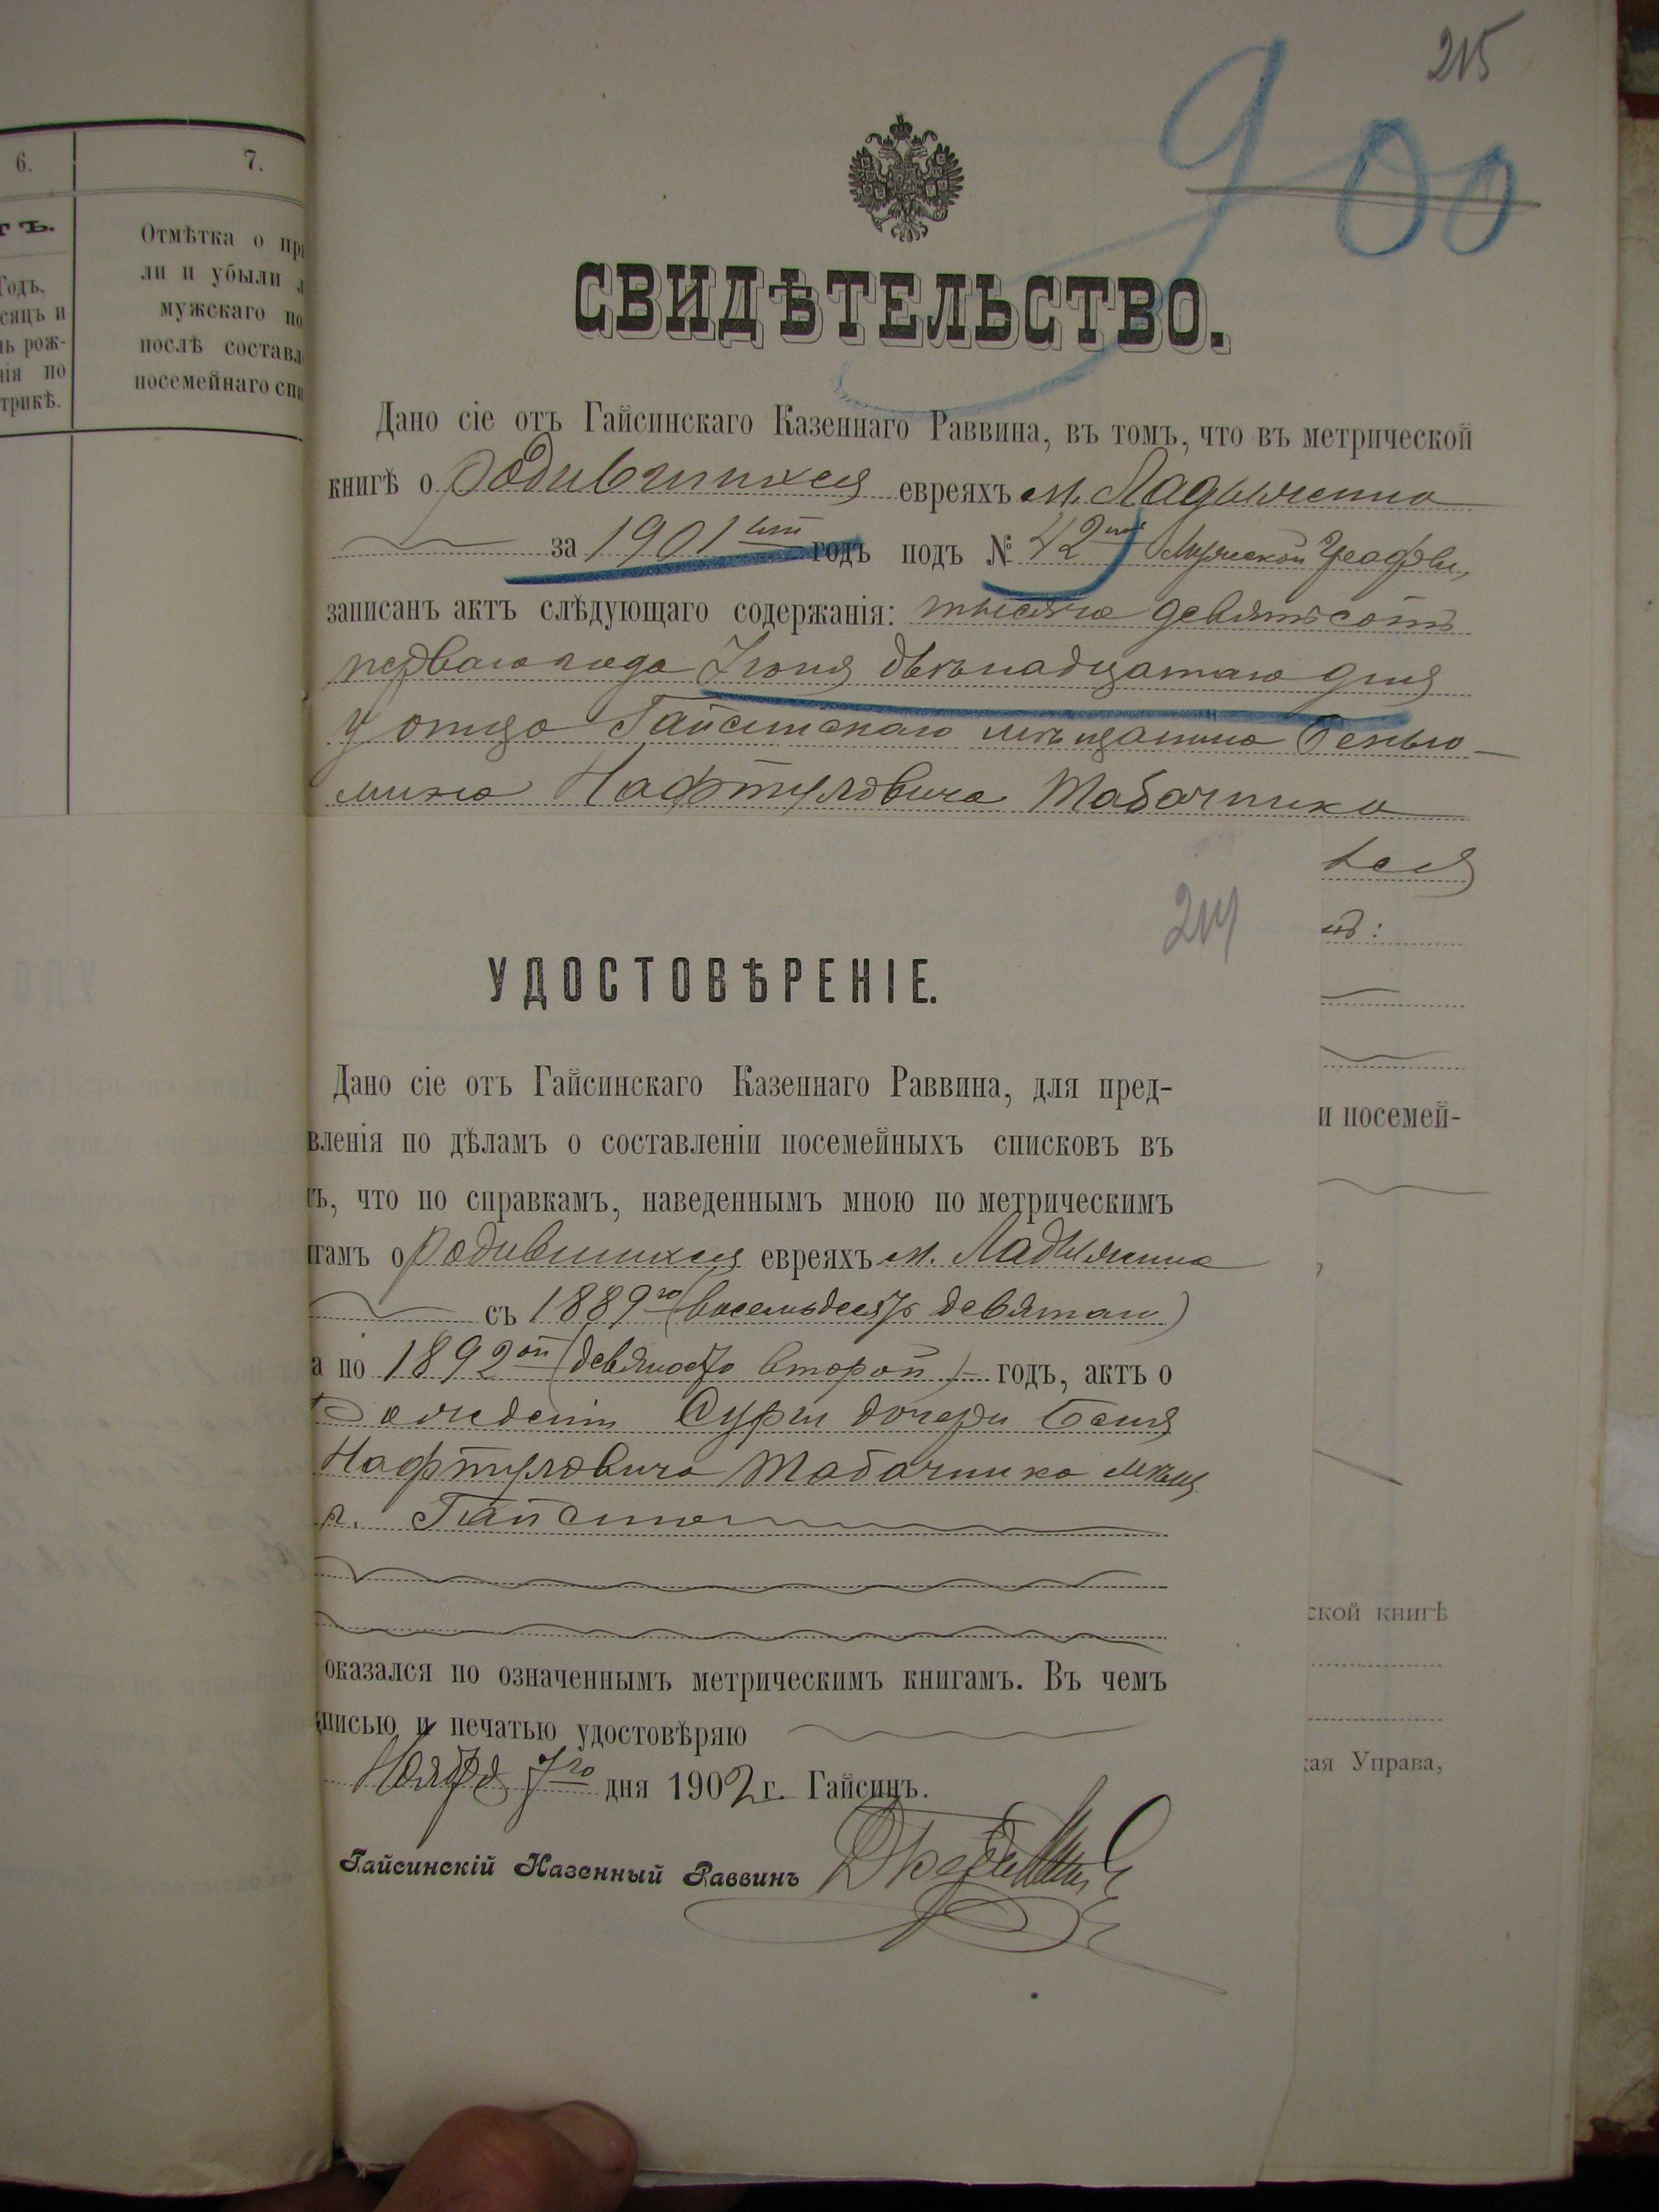 6.
7.
ТЪ.
Отмѣтка о при
Годъ,
ли и убыли л
сяцъ и
мужскаго по
нь рож-
послѣ составл
нія по
посемейнаго спи
трикѣ.
215
900
СВИДѢТЕЛЬСТВО.
Дано сіе отъ Гайсинскаго Казеннаго Раввина, въ томъ, что въ метрической
книгѣ о родившихся евреяхъ м. Ладыжина
за 1901ый годъ подъ № 42мъ Мужской Графы,
записанъ актъ слѣдующаго содержанія: тысяча девятьсотъ
перваго года Іюня двѣнадцатаго дня
у отца Гайсинскаго мѣщанина Беньо-
мина Нафтуловича Табачника
214
УДОСТОВѢРЕНІЕ.
Дано сіе отъ Гайсинскаго Казеннаго Раввина, для пред-
вленія по дѣламъ о составленіи посемейныхъ списковъ въ
ъ, что по справкамъ, наведеннымъ мною по метрическимъ
гамъ о родившихся евреяхъ м. Ладыжина
съ 1889го (восемьдесятъ девятаго)
а по 1892ой (девяносто второй) годъ, актъ о
рожденіи Суры дочери Беня
Нафтуловича Табачника мѣщ
г. Гайсина
оказался по означеннымъ метрическимъ книгамъ. Въ чемъ
писью и печатью удостовѣряю
Ноября 7го дня 1902 г. Гайсинъ.
Гайсинскій Казенный Раввинъ
ъ:
и посемей-
ской книгѣ
кая Управа,